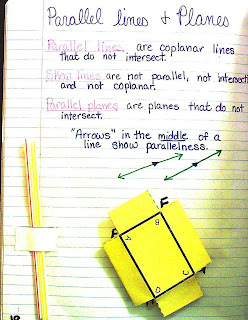 Parallel lines & Planes
Parallel lines, are coplanar lines
that do not intersect.
Skew lines are not parallel, not intersecti
and not coplanar.
Parallel planes are planes that do not
intersect.
"Arrows" in the middle of a
line show parallelness.
F
A
B
D
C